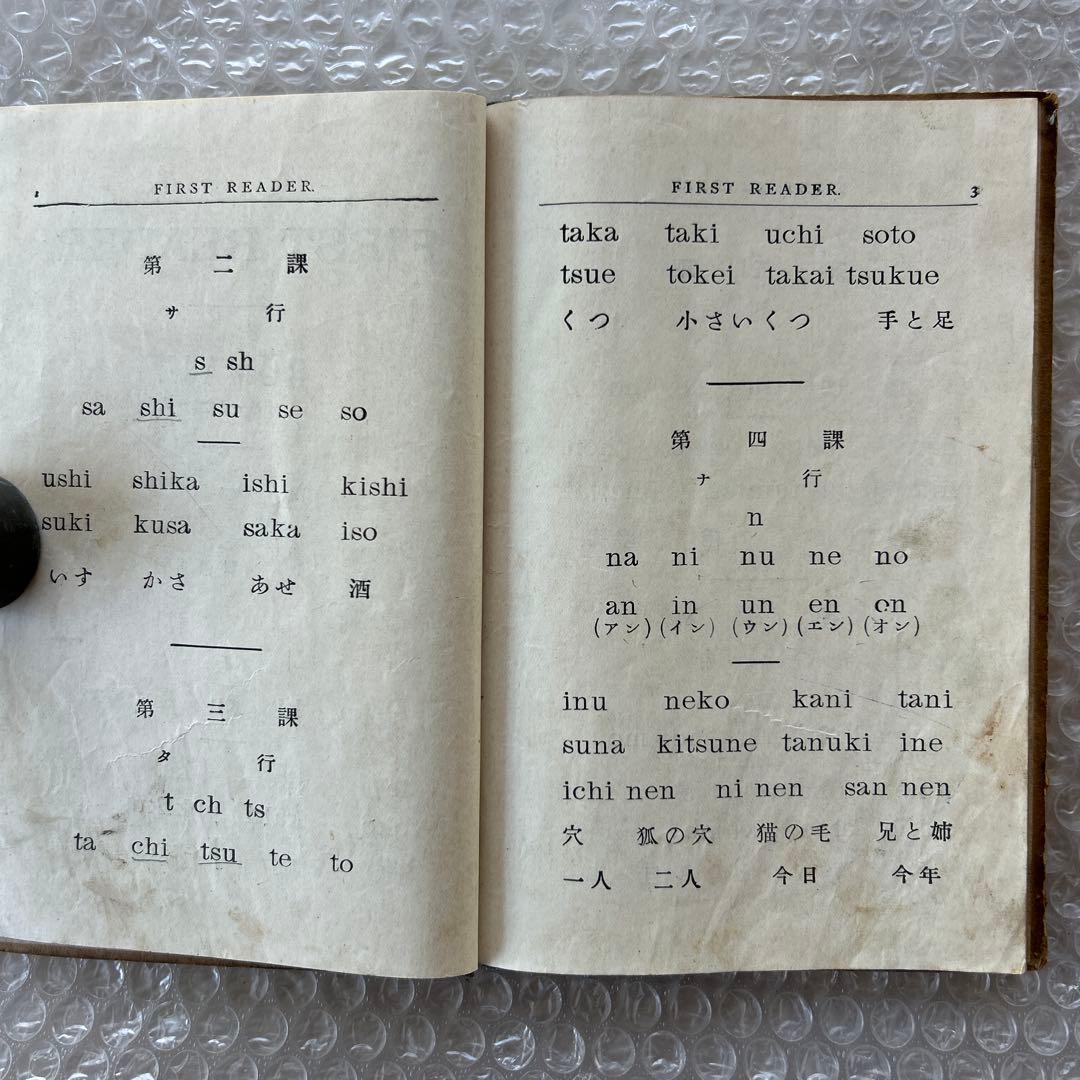 2 FIRST READER.
第 二 課
サ 行
s sh
sa shi su se so
ushi shika ishi kishi
suki kusa saka iso
いす かさ あせ 酒
第 三 課
タ 行
t ch ts
ta chi tsu te to
FIRST READER. 3
taka taki uchi soto
tsue tokei takai tsukue
くつ 小さいくつ 手と足
第 四 課
ナ 行
n
na ni nu ne no
an in un en on
(アン) (イン) (ウン) (エン) (オン)
inu neko kani tani
suna kitsune tanuki ine
ichi nen ni nen san nen
穴 狐の穴 猫の毛 兄と姉
一人 二人 今日 今年